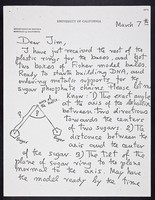 UNIVERSITY OF CALIFORNIA
March 7th
Dear Jim,
I have just received the rest of the
plastic rings for the bases, and got
two boxes of Fisher model bases.
Ready to start building DNA, and
ordering metallic supports for the
sugar phosphate chains. Please let
me know: 1) The exact angle
at the axis of the
between two directions
towards the centers
of two sugars. 2) The
distance between the
axis and the center
of the sugar 3) The tilt of the
plane of sugar ring to the plane
normal to the axis. May have
the model ready by the time